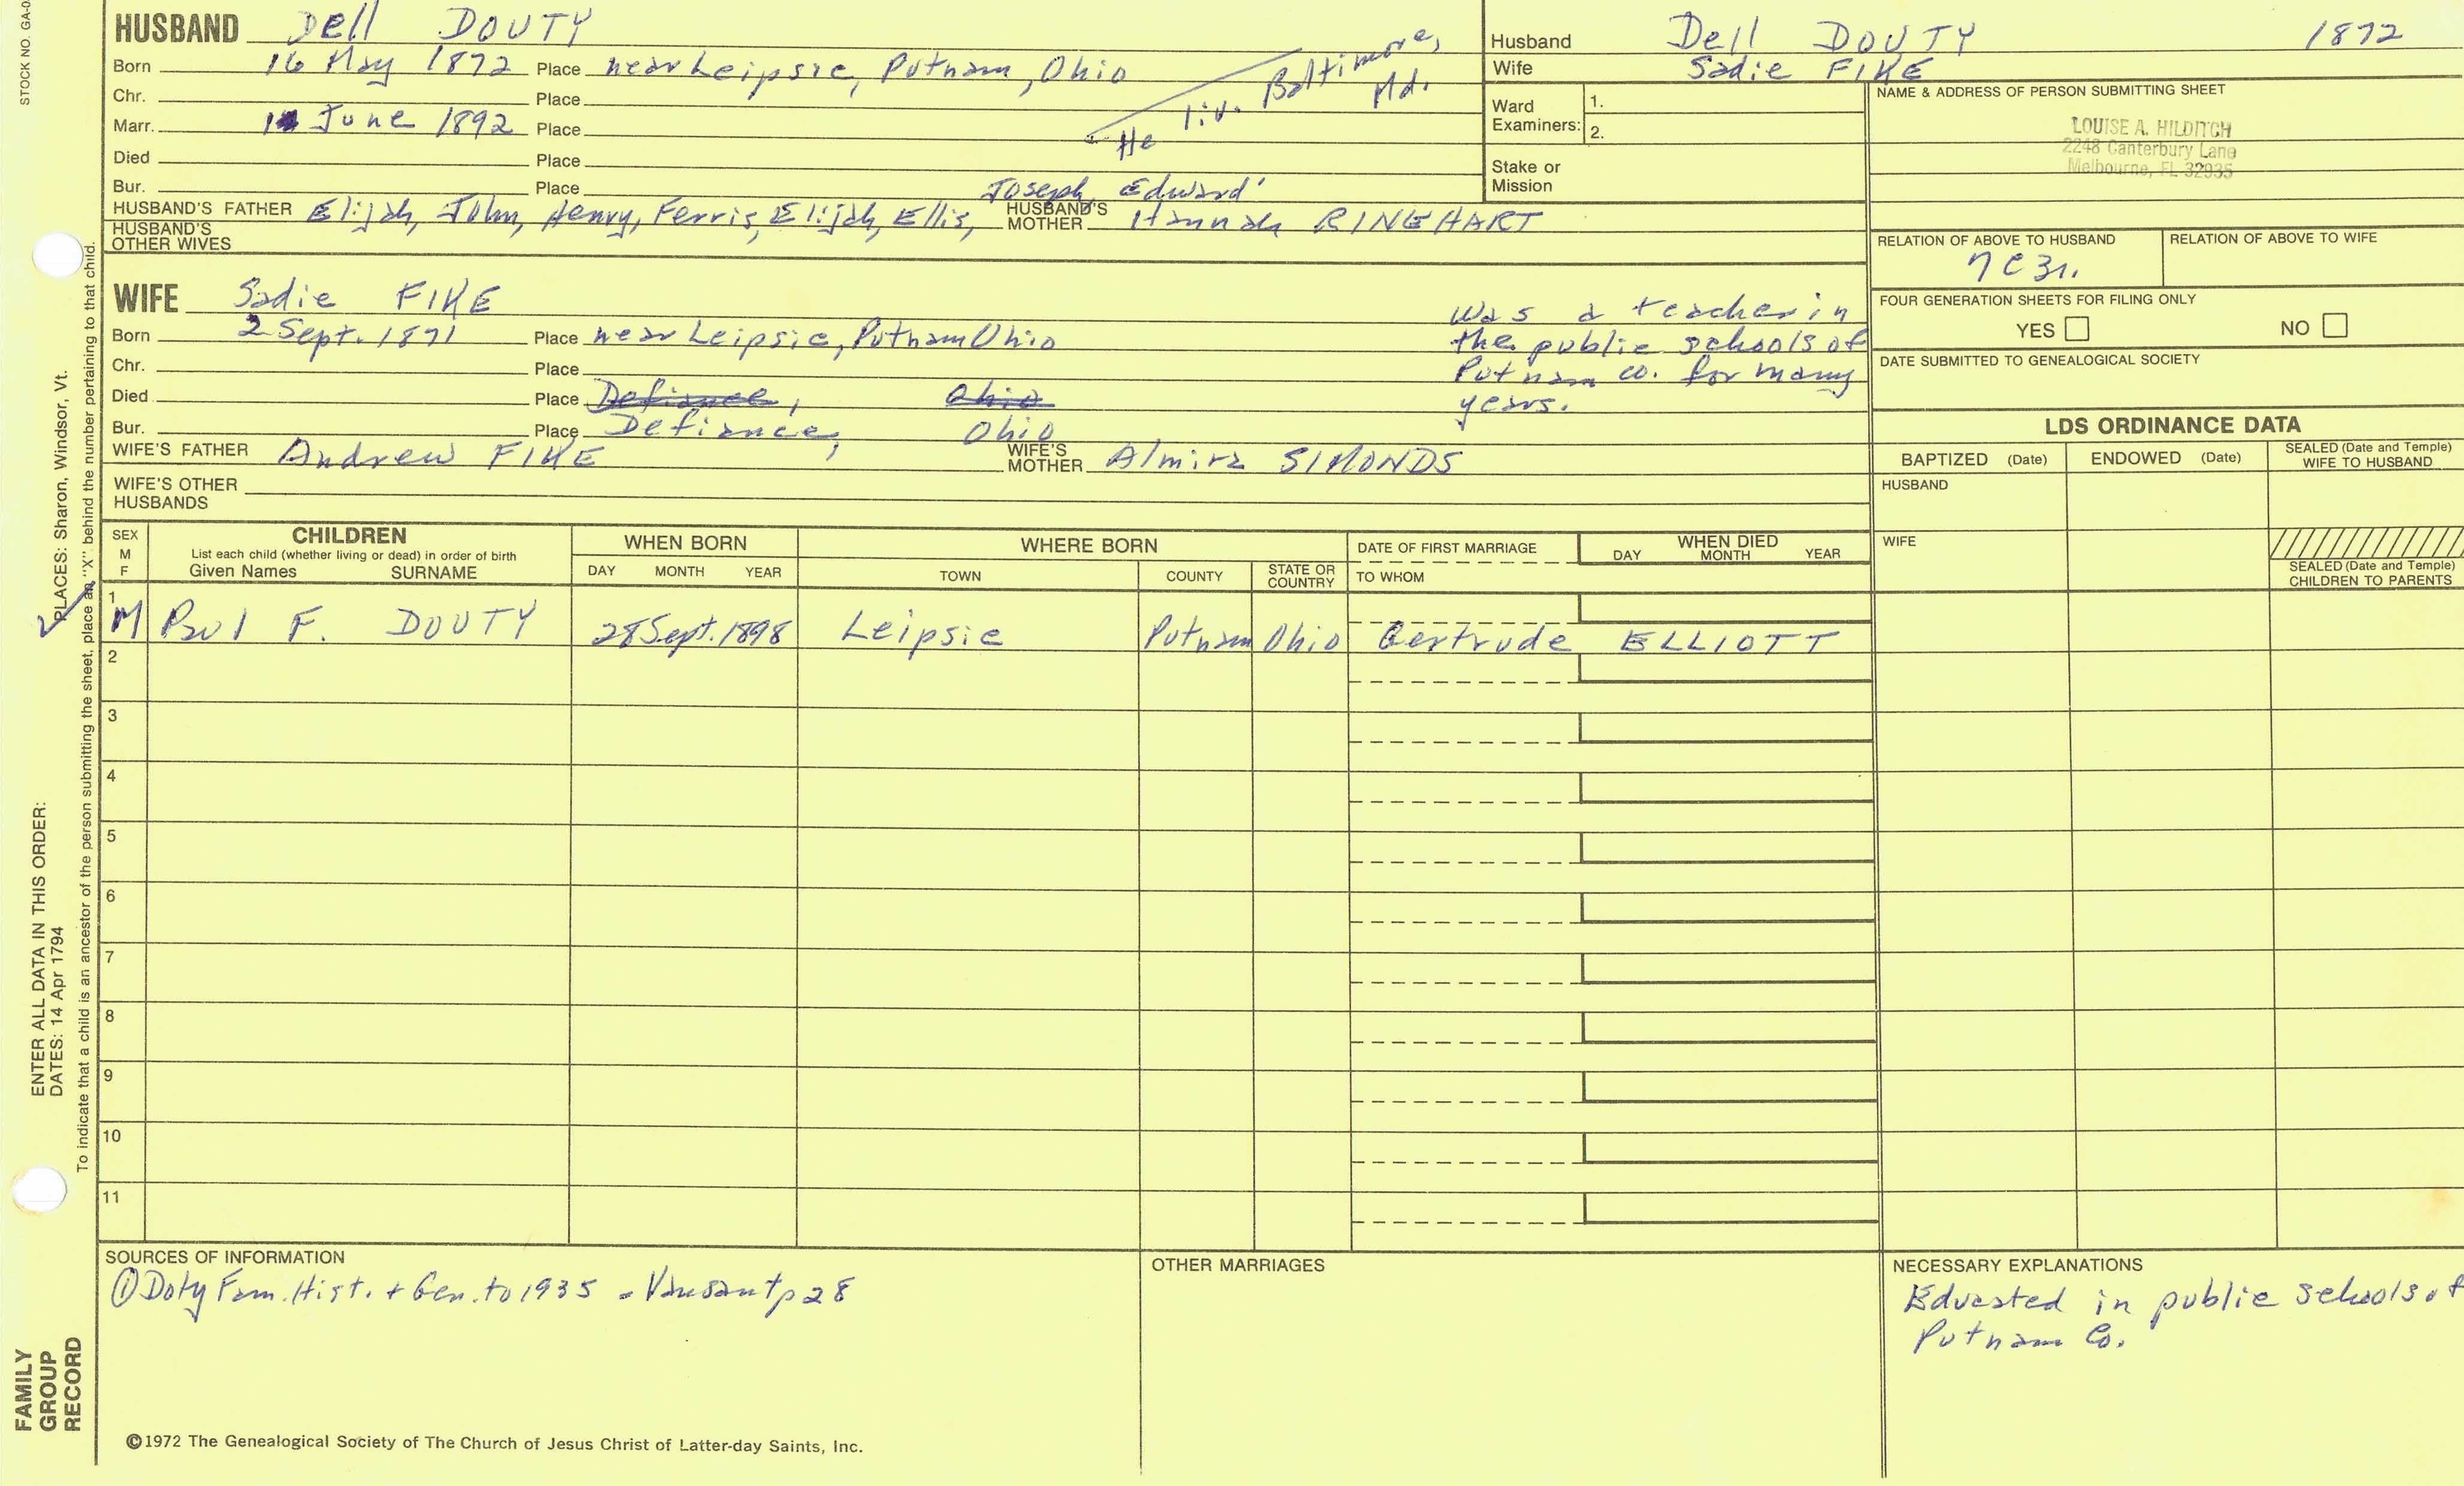 STOCK NO. GA-0
HUSBAND Dell DOUTY
Born 16 May 1872 Place near Leipsic, Putnam, Ohio
Chr. Place
Marr. June 1892 Place
Died Place
Bur. Place
He liv. Baltimore, Md.
Joseph, Edward
HUSBAND'S FATHER Elijah, John, Henry, Ferris, Elijah, Ellis, HUSBAND'S MOTHER Hannah RINEHART
HUSBAND'S OTHER WIVES
WIFE Sadie FIKE
Born 2 Sept. 1871 Place near Leipsic, Putnam Ohio
Chr. Place
Died Place Defiance, Ohio
Bur. Place Defiance, Ohio
was a teacher in
the public schools of
Putnam co. for many
years.
WIFE'S FATHER Andrew FIKE WIFE'S MOTHER Almira SIMONDS
WIFE'S OTHER HUSBANDS
Husband Dell DOUTY 1872
Wife Sadie FIKE
Ward Examiners: 1.
2.
Stake or Mission
NAME & ADDRESS OF PERSON SUBMITTING SHEET
LOUISE A. HILDITCH
2248 Canterbury Lane
Melbourne, FL 32935
RELATION OF ABOVE TO HUSBAND RELATION OF ABOVE TO WIFE
FOUR GENERATION SHEETS FOR FILING ONLY
YES NO
DATE SUBMITTED TO GENEALOGICAL SOCIETY
LDS ORDINANCE DATA
BAPTIZED (Date) ENDOWED (Date) SEALED (Date and Temple) WIFE TO HUSBAND
HUSBAND
WIFE
SEALED (Date and Temple) CHILDREN TO PARENTS
SEX M F
CHILDREN
List each child (whether living or dead) in order of birth
Given Names SURNAME
WHEN BORN
DAY MONTH YEAR
WHERE BORN
TOWN COUNTY STATE OR COUNTRY
DATE OF FIRST MARRIAGE
TO WHOM
WHEN DIED
DAY MONTH YEAR
1 M Paul F. DOUTY 28 Sept. 1898 Leipsic Putnam Ohio Gertrude ELLIOTT
2
3
4
5
6
7
8
9
10
11
SOURCES OF INFORMATION
① Doty Fam. Hist. + Gen. to 1935 - Vansant p 28
OTHER MARRIAGES
NECESSARY EXPLANATIONS
Educated in public schools of
Putnam Co.
©1972 The Genealogical Society of The Church of Jesus Christ of Latter-day Saints, Inc.
FAMILY
GROUP
RECORD
ENTER ALL DATA IN THIS ORDER:
DATES: 14 Apr 1794
PLACES: Sharon, Windsor, Vt.
To indicate that a child is an ancestor of the person submitting the sheet, place an "X" behind the number pertaining to that child.